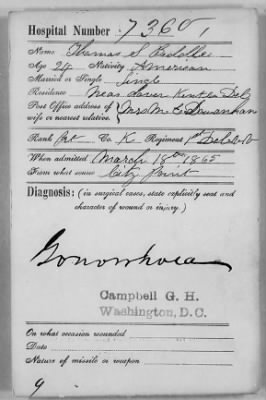 Hospital Number 7360,
Name Thomas S.
Age 24 Nativity American
Married or Single Single
Residence Near Dover Kent Co Del
Post Office address of
wife or nearest relative: Mrs M E
Rank Pvt Co. K Regiment 1st Del
When admitted March 18th 1865
From what source City Point
Diagnosis: (in surgical cases, state explicitly seat and
character of wound or injury.)
Gonorrhoea
Campbell G. H.
Washington, D.C.
On what occasion wounded
Date
Nature of missile or weapon
9